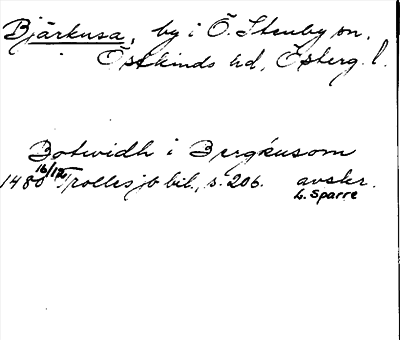 Bjärkusa, by i Ö. Stenby sn,
Östkinds hd, Österg. l.
Botwidh i Bergkusom
1480 16/12 Trollesjö bil., s. 206. avskr.
L. Sparre